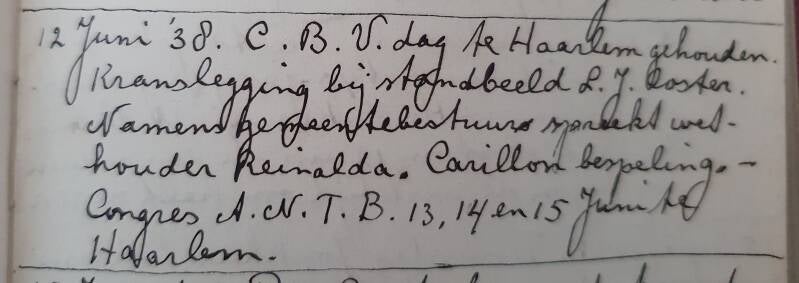 12 Juni '38. C. B. V. dag te Haarlem gehouden.
Kranslegging bij standbeeld L. J. Coster.
Namens gemeentebestuur spreekt wet-
houder Reinalda. Carillon bespeling. -
Congres A. N. T. B. 13, 14 en 15 Juni te
Haarlem.